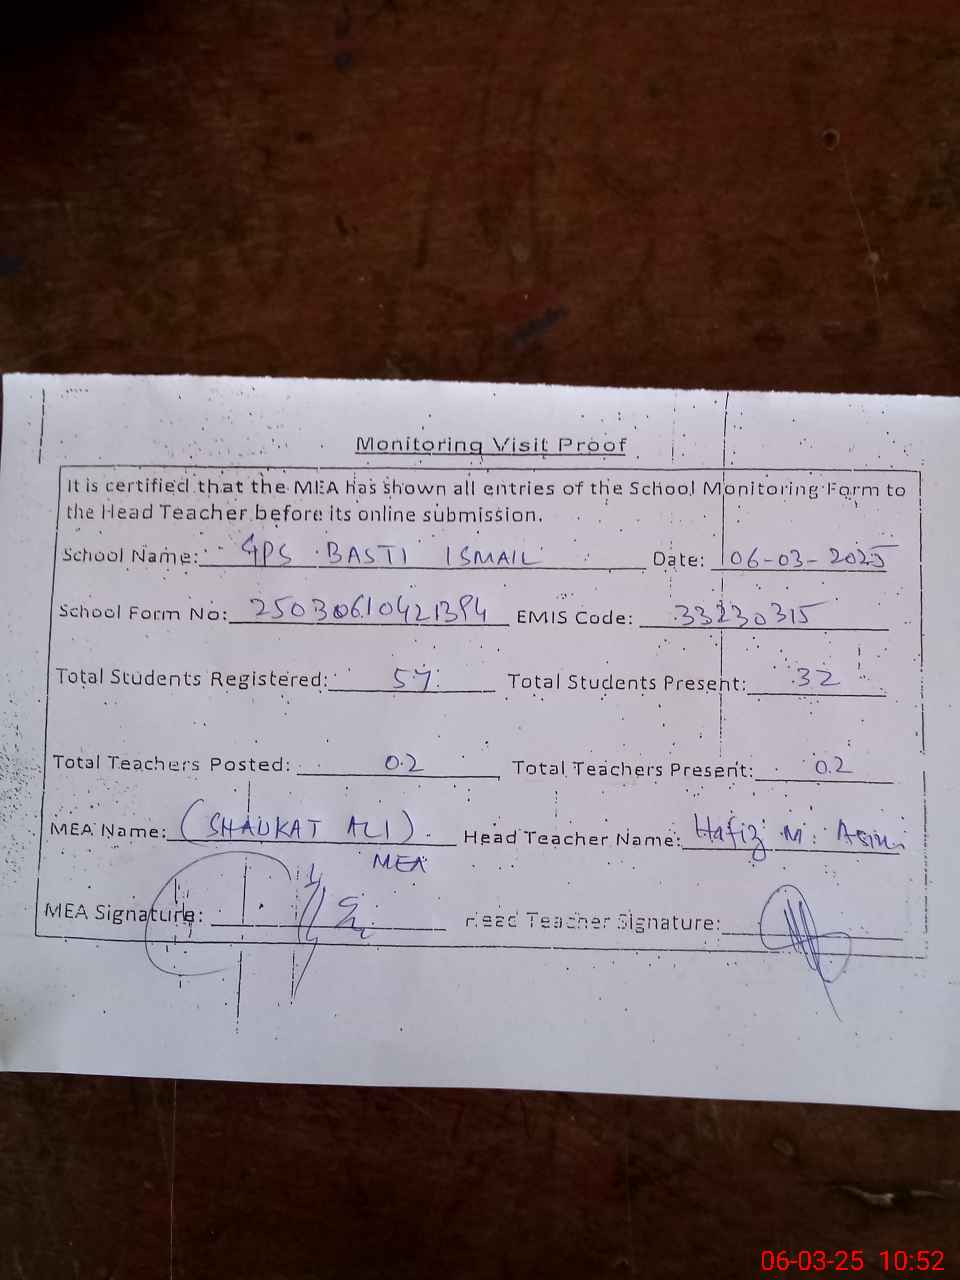 Monitoring Visit Proof
It is certified that the MEA has shown all entries of the School Monitoring Form to
the Head Teacher before its online submission.
School Name: GPS BASTI ISMAIL Date: 06-03-2025
School Form No: 25030610421394 EMIS Code: 33230315
Total Students Registered: 57 Total Students Present: 32
Total Teachers Posted: 02 Total Teachers Present: 02
MEA Name: (SHAUKAT ALI). Head Teacher Name: Hafiz M. Asim
MEA
MEA Signature: Head Teacher Signature:
06-03-25 10:52